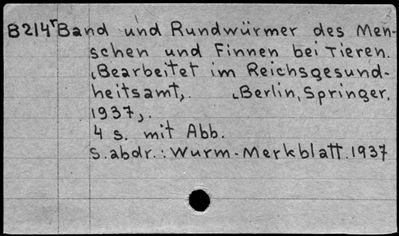 B214r Band und Rundwürmer des Men-
schen und Finnen bei Tieren.
(Bearbeitet im Reichsgesund-
heitsamt,. (Berlin, Springer,
1937,.
4 s. mit Abb.
S.abdr.: Wurm-Merkblatt.1937